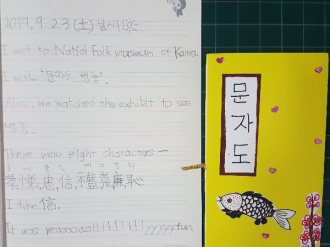 2017. 9. 23 (土) 날씨:
I went to Nat'nal Folk museum of Korea.
I made '문자도 병풍'.
Also, we watched the exhibit to see
There were eight characters —
孝, 悌, 忠, 信, 禮, 義, 廉, 恥
I like 信.
It was yeaoooool!!!!!!!! fun
문자도